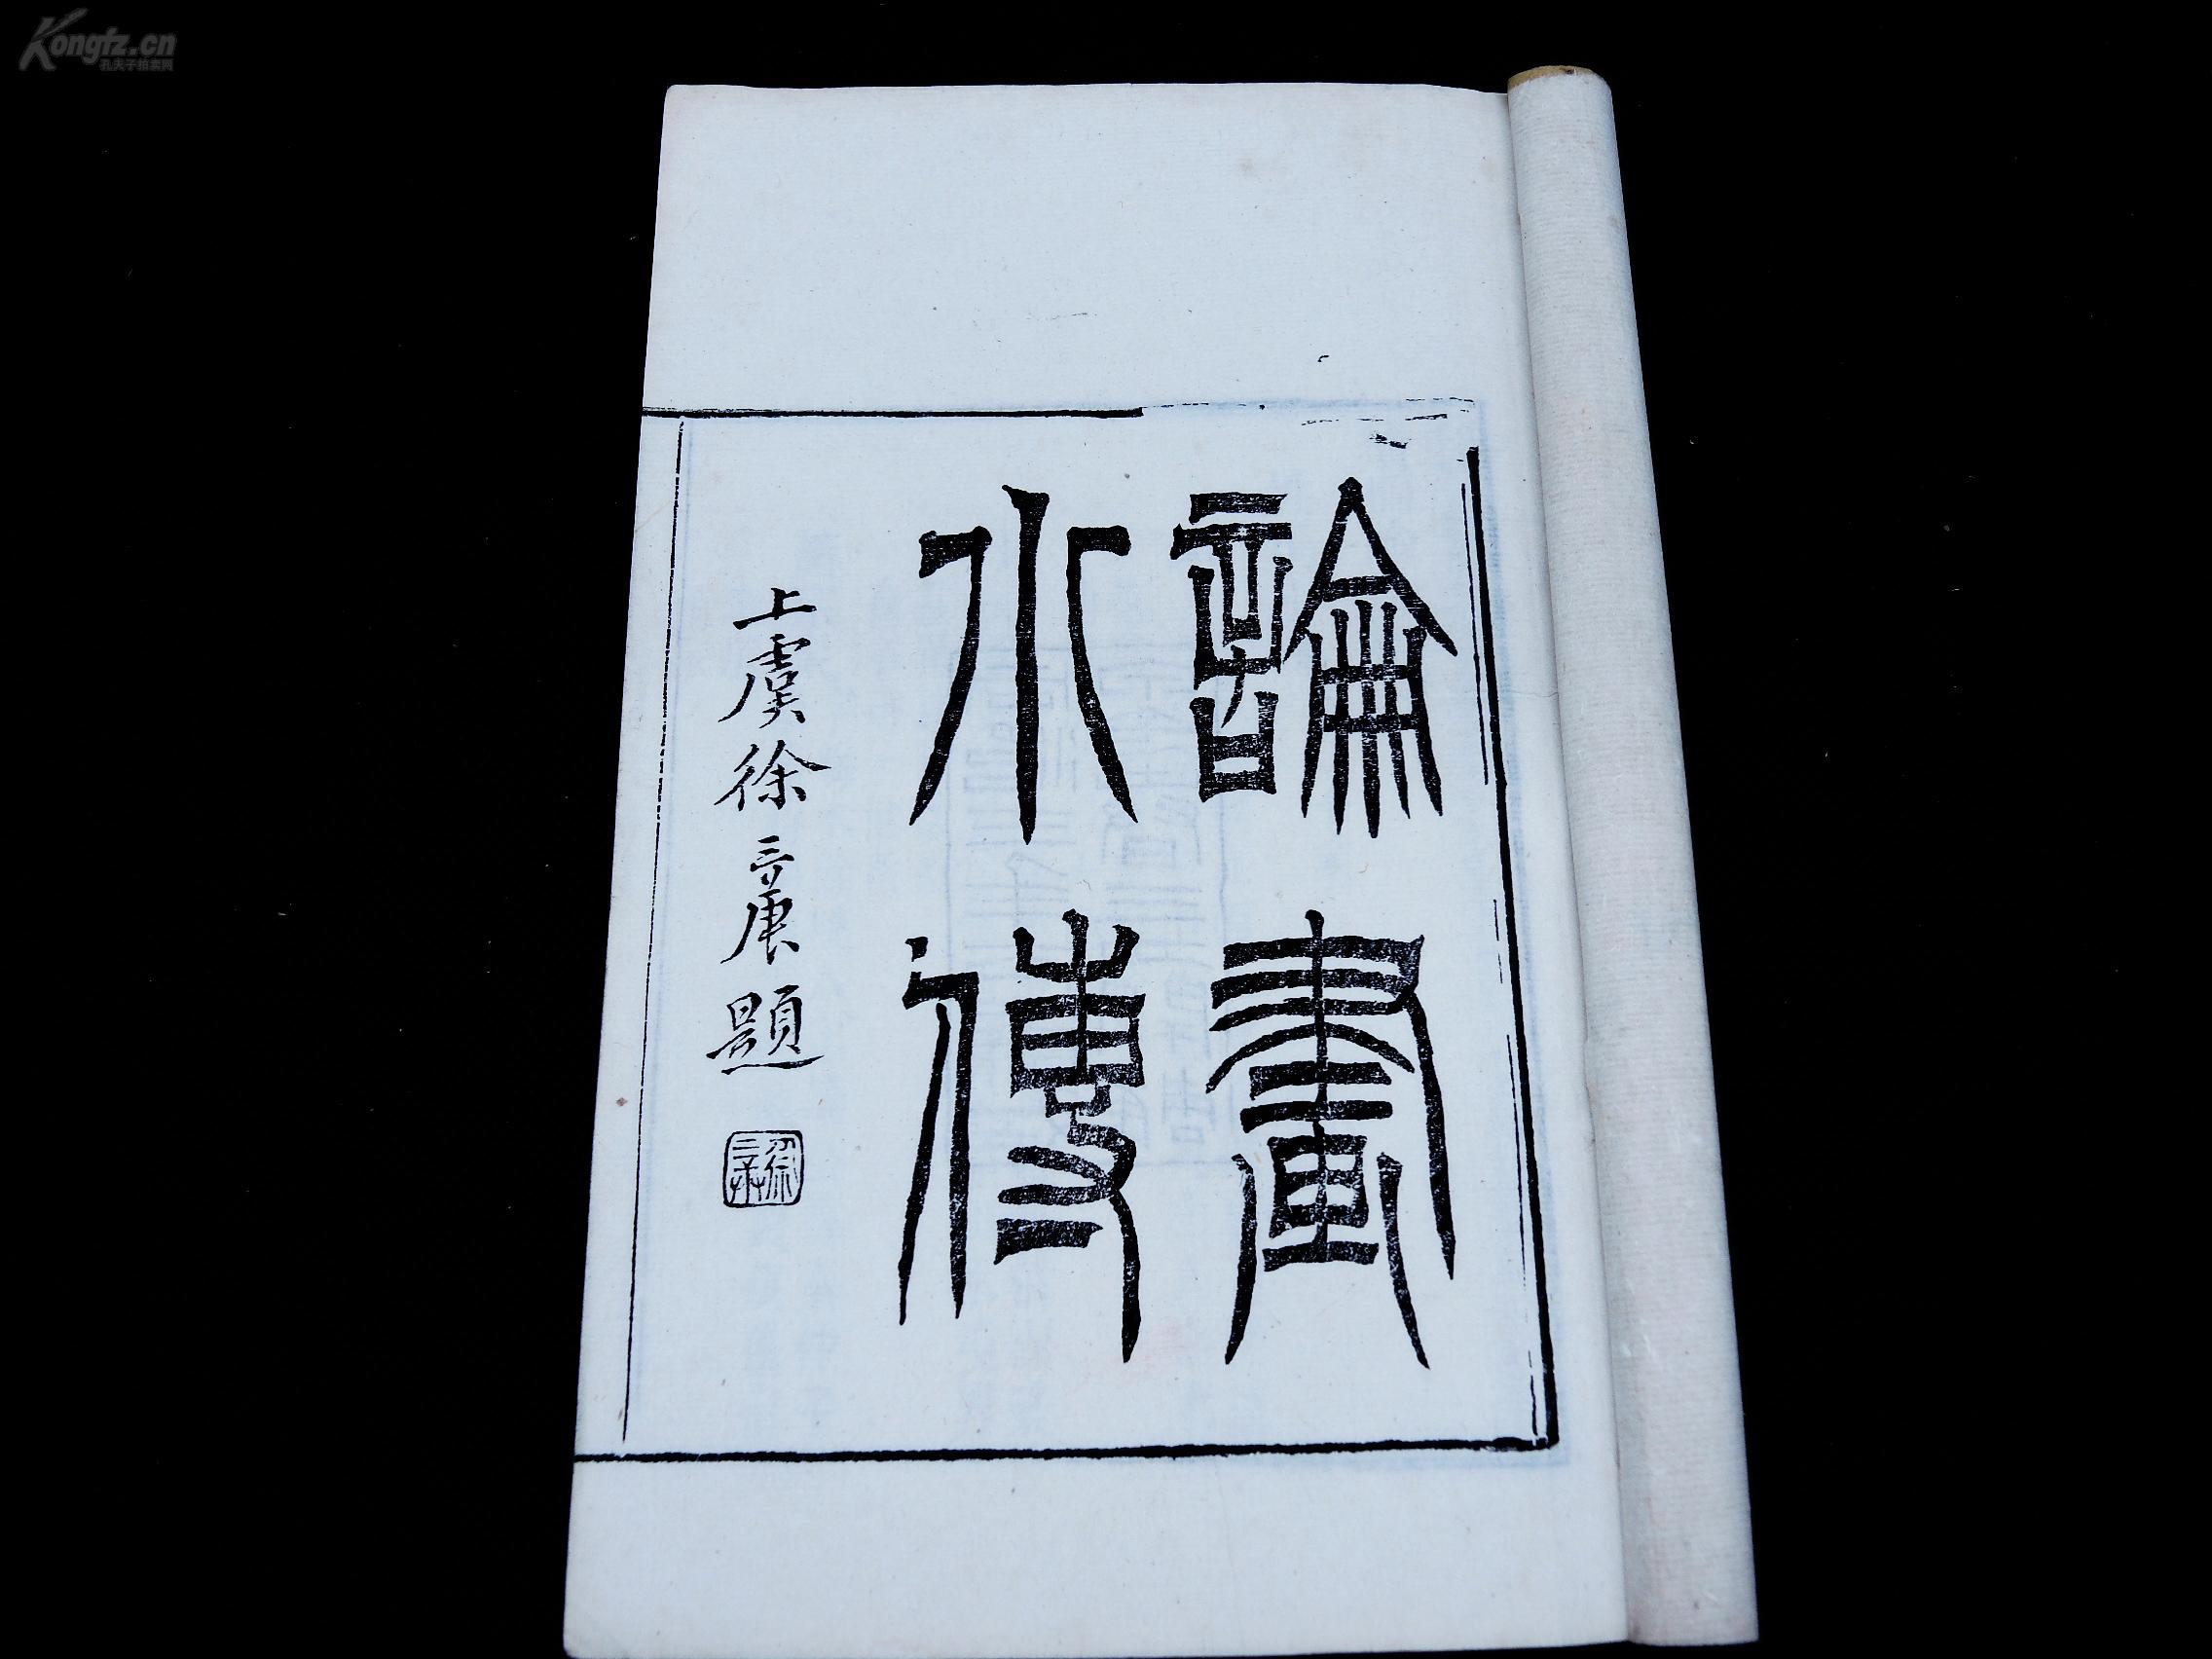 Kongfz.cn
孔夫子拍卖网
論畫
小傳
上虞徐三庚題
徐
三庚